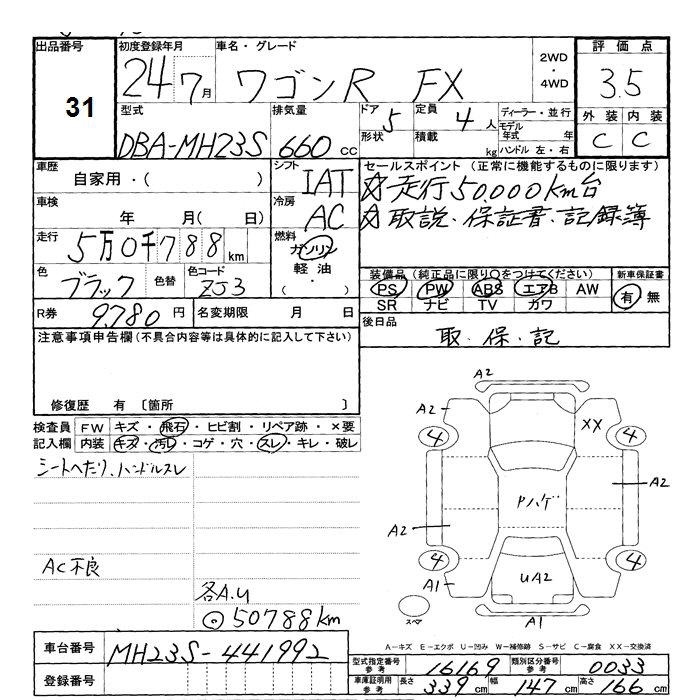 出品番号 31
初度登録年月 24 7月
車名・グレード ワゴンR FX
2WD・4WD
評価点 3.5
外装 内装
C C
型式 DBA-MH23S
排気量 660 cc
ドア 5
形状
定員 4 人
積載 kg
ディーラー・並行
モデル年式 年
ハンドル 左・右
車歴 自家用・( )
シフト IAT
セールスポイント (正常に機能するものに限ります)
☆走行50,000km台
☆取説・保証書・記録簿
車検 年 月( 日)
冷房 AC
走行 5万0千788km
燃料 ガソリン
軽油
( ・ )
色 ブラック
色替
色コード ZJ3
装備品 (純正品に限り○をつけてください)
新車保証書
PS PW ABS エアB AW
有 無
SR ナビ TV カワ
R券 9,780 円
名変期限 月 日
後日品 取・保・記
注意事項申告欄(不具合内容等は具体的に記入して下さい)
修復歴 有 〔箇所 〕
検査員記入欄
FW キズ・飛石・ヒビ割・リペア跡・×要
内装 キズ・汚レ・コゲ・穴・スレ・キレ・破レ
シートへたり、ハンドルスレ
AC不良
各A.U
◎50788km
A2
A2
XX
4
4
A2
Pハゲ
A2
4
4
A1
UA2
A1
スペア
A-キズ E-エクボ U-凹み W-補修跡 S-サビ C-腐食 XX-交換済
車台番号 MH23S-441992
登録番号
型式指定番号参考 16169
類別区分番号参考 0033
車庫証明用参考 長さ 339cm 幅 147cm 高さ 166cm